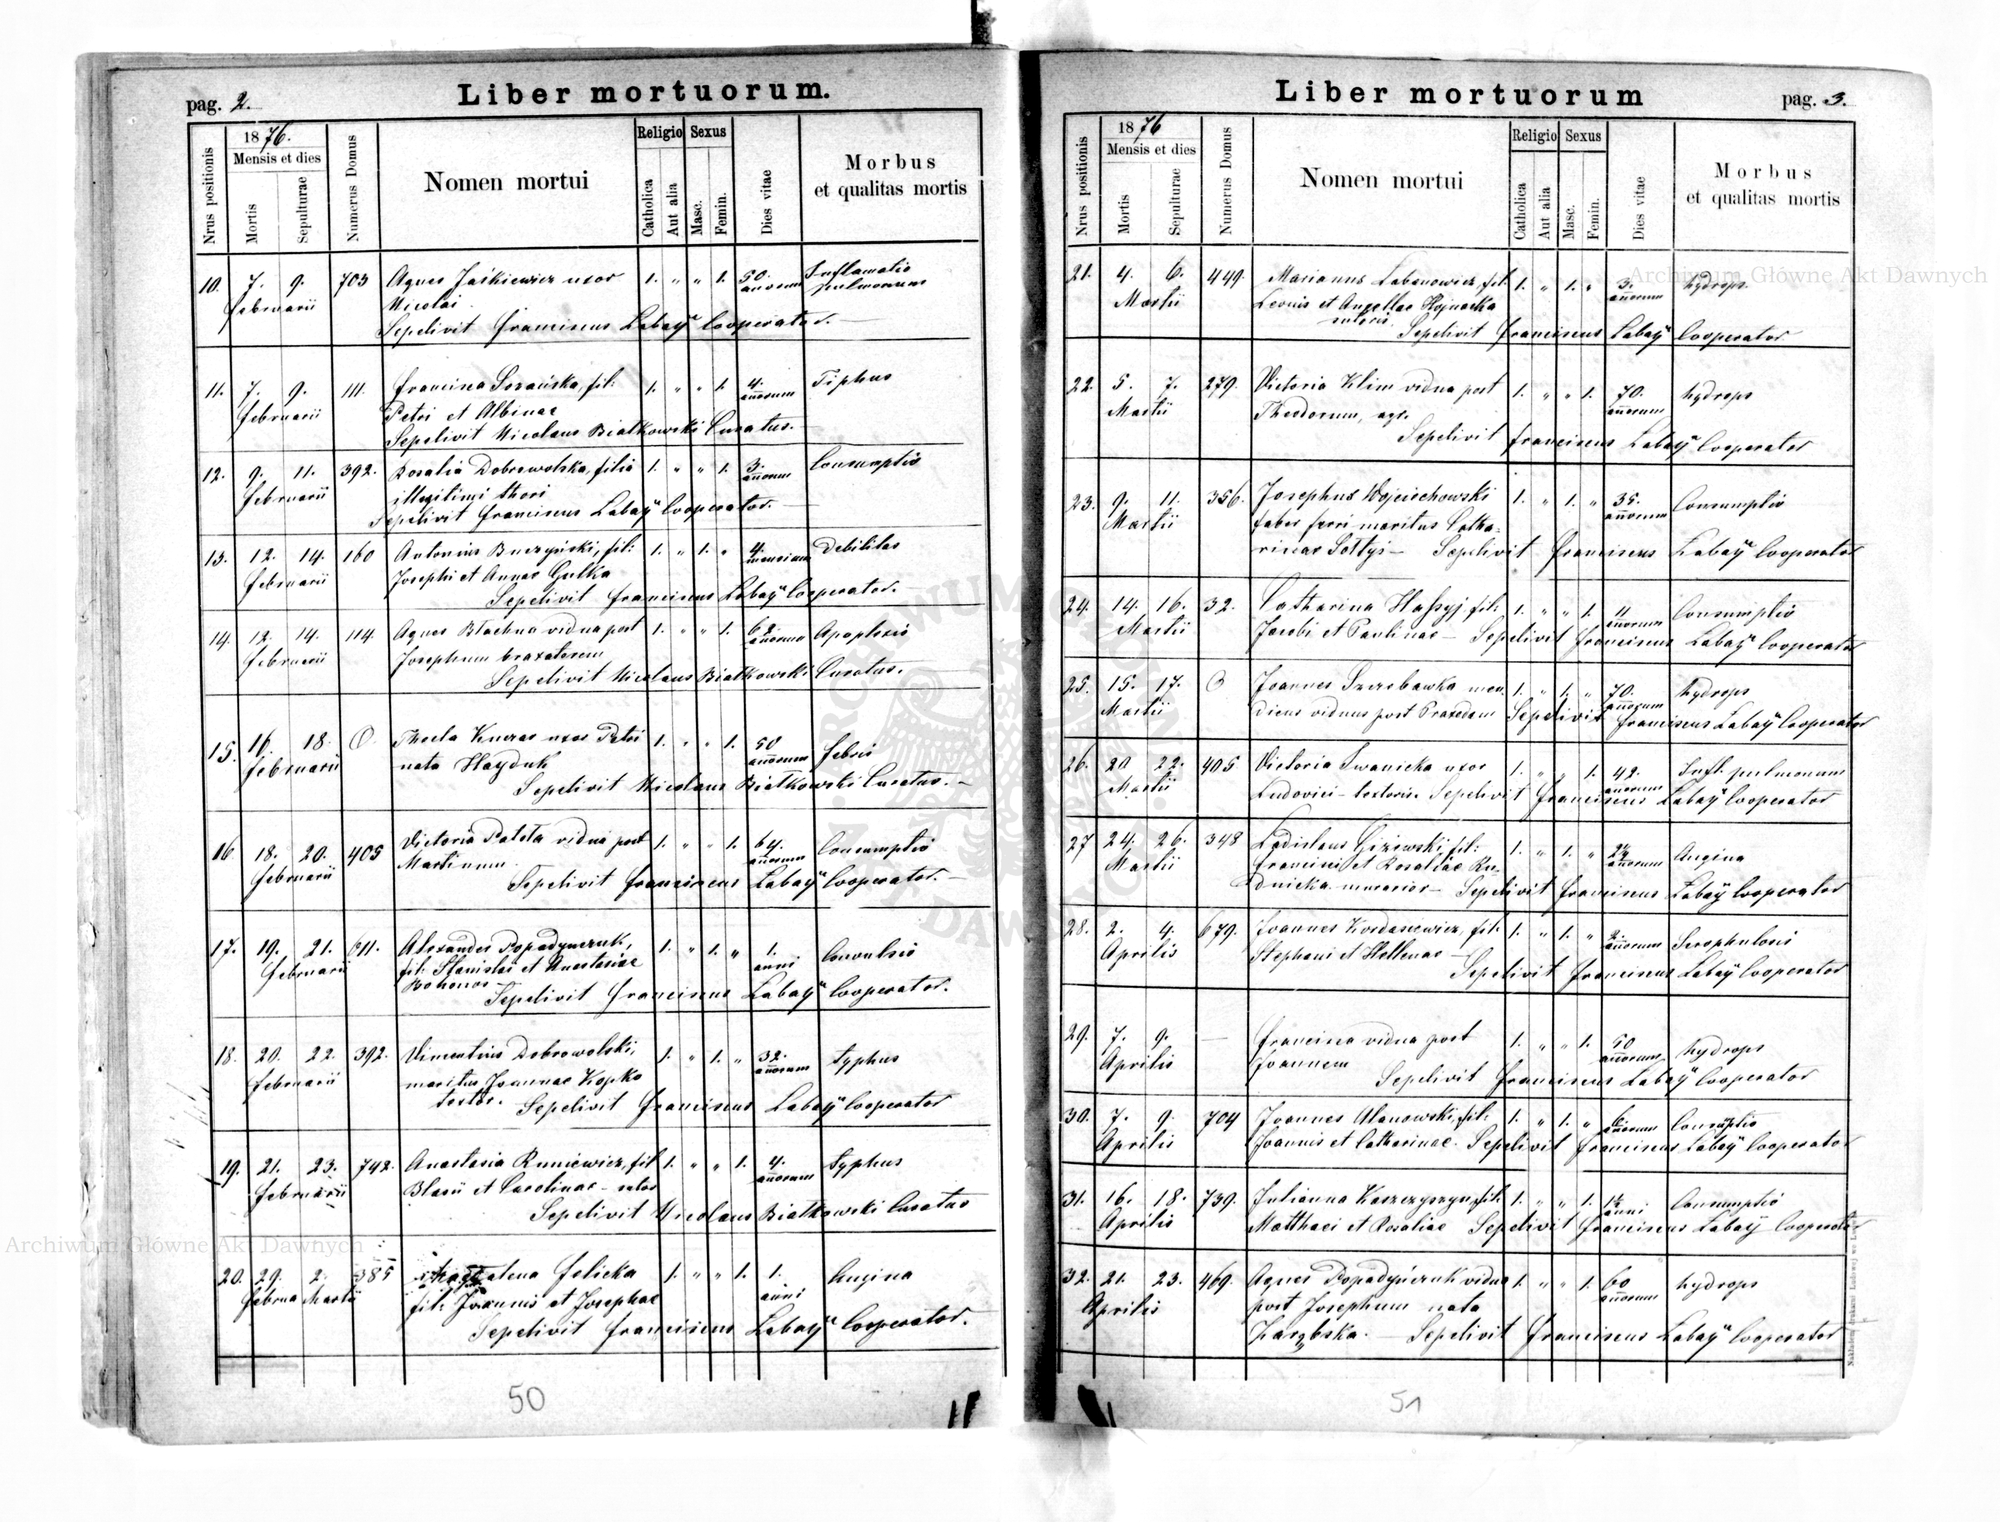 pag. 2.
Liber mortuorum.
Nrus positionis
1876.
Mensis et dies
Mortis
Sepulturae
Numerus Domus
Nomen mortui
Religio
Catholica
Aut alia
Sexus
Masc.
Femin.
Dies vitae
Morbus
et qualitas mortis
10. 7. 9. 703 Agnes Jaśkiewicz uxor 1. " " 1. 50. Inflamatio
Februarii Nicolai annorum pulmonum
Sepelivit Franciscus Labaÿ Cooperator.
11. 7. 9. 111. Francisca Sozańska, fil: 1. " " 1. 4. Tiphus
Februarii Petri et Albinae annorum
Sepelivit Nicolaus Białkowski Curatus.
12. 9. 11. 392. Rosalia Dobrowolska, filia 1. " " 1. 3. Consumptio
Februarii illegitimi thori annorum
Sepelivit Franciscus Labaÿ Cooperator.
13. 12. 14. 160 Antonius Buczyński, fil: 1. " 1. " 4. Debilitas
Februarii Josephi et Annae Gulka mensium
Sepelivit Franciscus Labaÿ Cooperator.
14. 12. 14. 114. Agnes Błachna vidua post 1. " " 1. 62. Apoplexio
Februarii Josephum braxatorem annorum
Sepelivit Nicolaus Białkowski Curatus.
15. 16. 18. 0. Thecla Kneraz uxor Petri 1. " " 1. 50 Febris
Februarii nata Hayduk annorum
Sepelivit Nicolaus Białkowski Curatus.
16 18. 20. 405 Victoria vidua post 1. " " 1. 64. Consumptio
Februarii Martinum annorum
Sepelivit Franciscus Labaÿ Cooperator.
17. 19. 21. 611. Alexander Popadynczuk, 1. " 1. " 1. Convulsio
Februarii fil: Stanislai et Anastasiae anni
Bohonos Sepelivit Franciscus Labaÿ Cooperator.
18. 20. 22. 392. Vincentius Dobrowolski, 1. " 1. " 32. Typhus
Februarii maritus Joannae Kopko annorum
textor. Sepelivit Franciscus Labaÿ Cooperator
19. 21. 23. 742. Anastasia Runiewicz, fil 1. " " 1. 4. Typhus
Februarii Blasii et Carolinae – sutor annorum
Sepelivit Nicolaus Białkowski Curatus
20. 29. 2. 385 Magdalena Felicka 1. " " 1. 1. Angina
Februa Martii fil: Joannis et Josephae anni
Sepelivit Franciscus Labaÿ Cooperator.
50
Liber mortuorum
pag. 3.
Nrus positionis
1876
Mensis et dies
Mortis
Sepulturae
Numerus Domus
Nomen mortui
Religio
Catholica
Aut alia
Sexus
Masc.
Femin.
Dies vitae
Morbus
et qualitas mortis
21. 4. 6. 449. Marianus Labanowicz, fil: 1. " 1. " 3. hydrops
Martii Leonis et Angellae Hojnacka annorum
sutoris. Sepelivit Franciscus Labaÿ Cooperator
22. 5. 7. 279. Victoria Klim vidua post 1. " " 1. 70. hydrops
Martii Theodorum, agr. annorum
Sepelivit Franciscus Labaÿ Cooperator
23. 9. 11. 356. Josephus Wojciechowski 1. " 1. " 35. Consumptio
Martii faber ferri maritus Catha- annorum
rinae Sołtys – Sepelivit Franciscus Labaÿ Cooperator
24. 14. 16. 32. Catharina fil: 1. " " 1. 11 Consumptio
Martii Jacobi et Paulinae – Sepelivit Franciscus annorum Labaÿ Cooperator
25. 15. 17. 0 Joannes Szczebawka men- 1. " 1. " 70. hydrops
Martii dicus viduus post Praxedem Sepelivit annorum Franciscus Labaÿ Cooperator
26. 20 22. 405 Victoria Iwanicka uxor 1. " " 1. 42. Infl. pulmonum
Martii Ludovici – textoris. Sepelivit Franciscus annorum Labaÿ Cooperator
27 24. 26. 348 Ladislaus Giziewski, fil: 1. " 1. " 2½ Angina
Martii Francisci et Rosaliae Ru- annorum
dnicka murarior – Sepelivit Franciscus Labaÿ Cooperator
28. 2. 4. 679. Joannes Kordasiewicz, fil: 1. " 1. " 2. Scrophulosi
Aprilis Stephani et Hellenae – annorum
Sepelivit Franciscus Labaÿ Cooperator
29. 7. 9. — Francisca vidua post 1. " " 1. 50 hydrops
Aprilis Joannem annorum
Sepelivit Franciscus Labaÿ Cooperator
30. 7. 9. 704 Joannes Ulanowski, fil: 1. " 1. " 6. Consumptio
Aprilis Joannis et Catharinae. Sepelivit Franciscus annorum Labaÿ Cooperator
31. 16. 18. 739. Julianna Kaszczyszyn, fil: 1. " " 1. 1½ Consumptio
Aprilis Matthaei et Rosaliae Sepelivit Franciscus anni Labaÿ Cooperator
32. 21. 23. 469. Agnes Popadyńczuk vidua 1. " " 1. 60 hydrops
Aprilis post Josephum nata annorum
Zarębska. – Sepelivit Franciscus Labaÿ Cooperator
51
Archiwum Główne Akt Dawnych
Archiwum Główne Akt Dawnych
ARCHIWUM GŁÓWNE AKT DAWNYCH